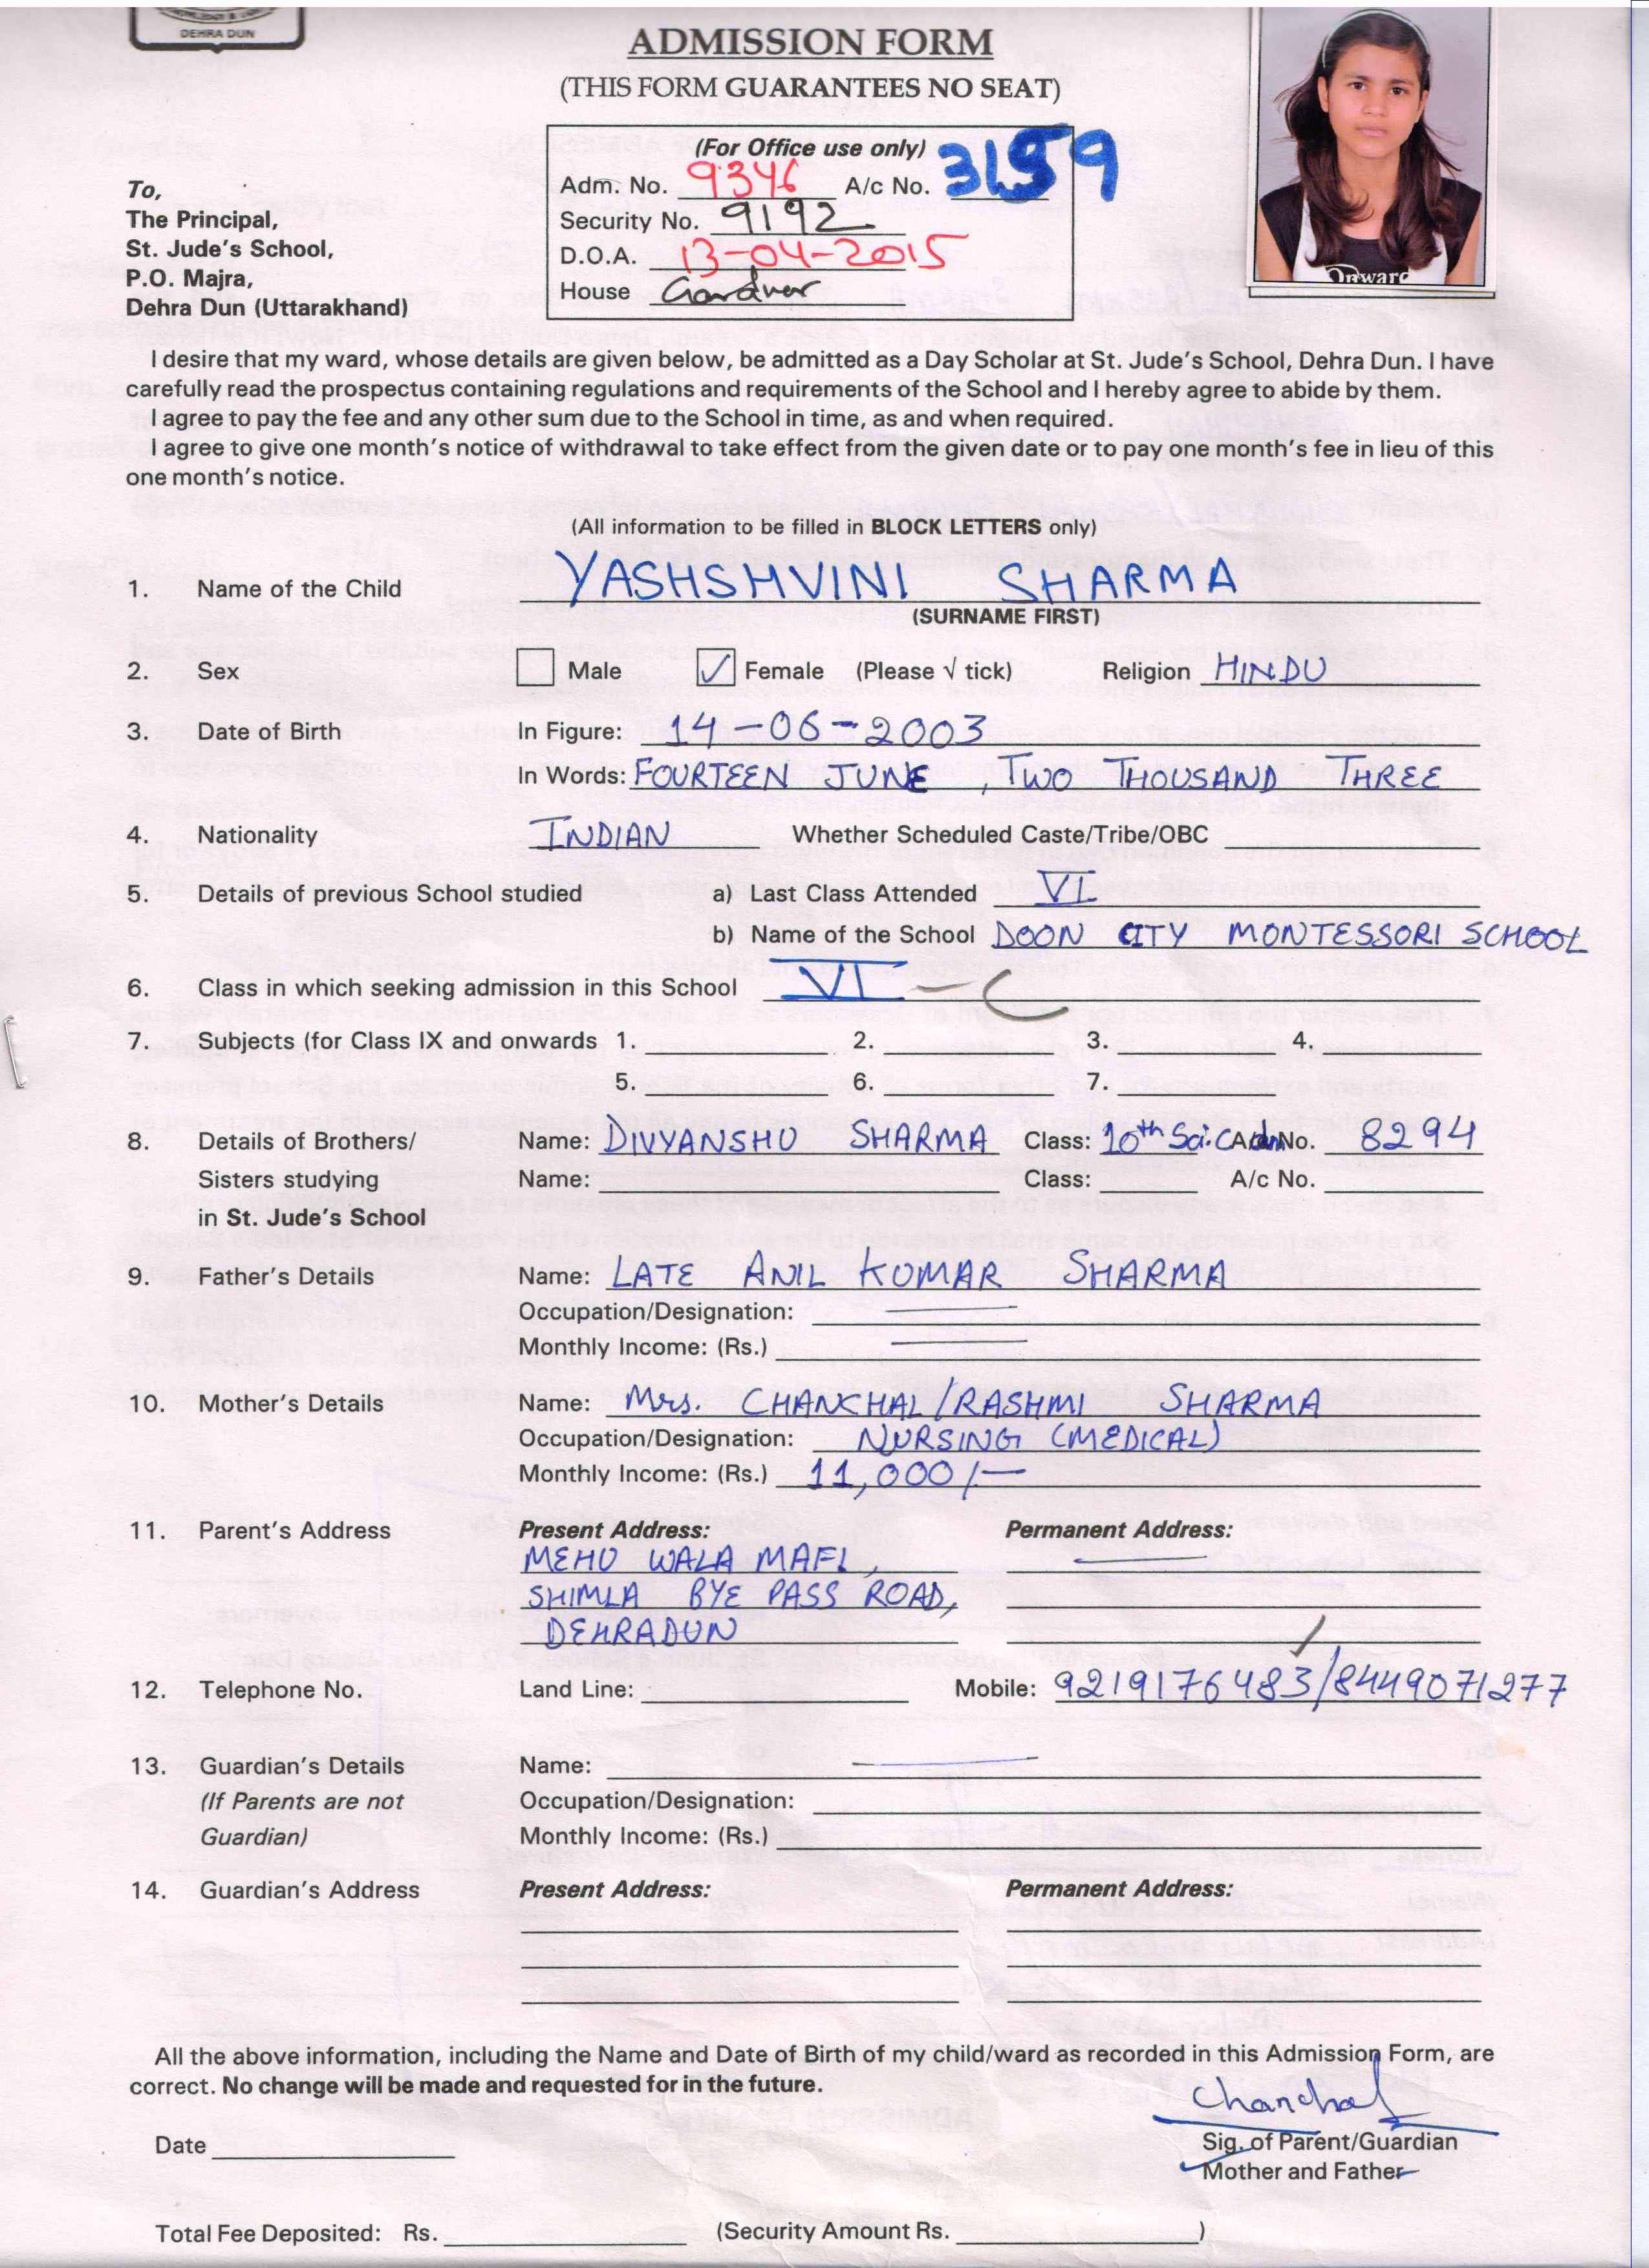 DEHRA DUN
ADMISSION FORM
(THIS FORM GUARANTEES NO SEAT)
(For Office use only)
Adm. No. 9346 A/c No. 3159
Security No. 9192
D.O.A. 13-04-2015
House Gardner
To,
The Principal,
St. Jude's School,
P.O. Majra,
Dehra Dun (Uttarakhand)
Onward
I desire that my ward, whose details are given below, be admitted as a Day Scholar at St. Jude's School, Dehra Dun. I have
carefully read the prospectus containing regulations and requirements of the School and I hereby agree to abide by them.
I agree to pay the fee and any other sum due to the School in time, as and when required.
I agree to give one month's notice of withdrawal to take effect from the given date or to pay one month's fee in lieu of this
one month's notice.
(All information to be filled in BLOCK LETTERS only)
1. Name of the Child YASHSHVINI SHARMA
(SURNAME FIRST)
2. Sex Male ✓ Female (Please √ tick) Religion HINDU
3. Date of Birth In Figure: 14-06-2003
In Words: FOURTEEN JUNE, TWO THOUSAND THREE
4. Nationality INDIAN Whether Scheduled Caste/Tribe/OBC
5. Details of previous School studied a) Last Class Attended VI
b) Name of the School DOON CITY MONTESSORI SCHOOL
6. Class in which seeking admission in this School VI - C
7. Subjects (for Class IX and onwards 1. 2. 3. 4.
5. 6. 7.
8. Details of Brothers/ Name: DIVYANSHU SHARMA Class: 10th Sci. C Adm No. 8294
Sisters studying Name: Class: A/c No.
in St. Jude's School
9. Father's Details Name: LATE ANIL KUMAR SHARMA
Occupation/Designation:
Monthly Income: (Rs.)
10. Mother's Details Name: Mrs. CHANCHAL/RASHMI SHARMA
Occupation/Designation: NURSING (MEDICAL)
Monthly Income: (Rs.) 11,000/-
11. Parent's Address Present Address: Permanent Address:
MEHU WALA MAFI,
SHIMLA BYE PASS ROAD,
DEHRADUN
12. Telephone No. Land Line: Mobile: 9219176483/8449071277
13. Guardian's Details Name:
(If Parents are not Occupation/Designation:
Guardian) Monthly Income: (Rs.)
14. Guardian's Address Present Address: Permanent Address:
All the above information, including the Name and Date of Birth of my child/ward as recorded in this Admission Form, are
correct. No change will be made and requested for in the future.
Chanchal
Date Sig. of Parent/Guardian
Mother and Father
Total Fee Deposited: Rs. (Security Amount Rs. )